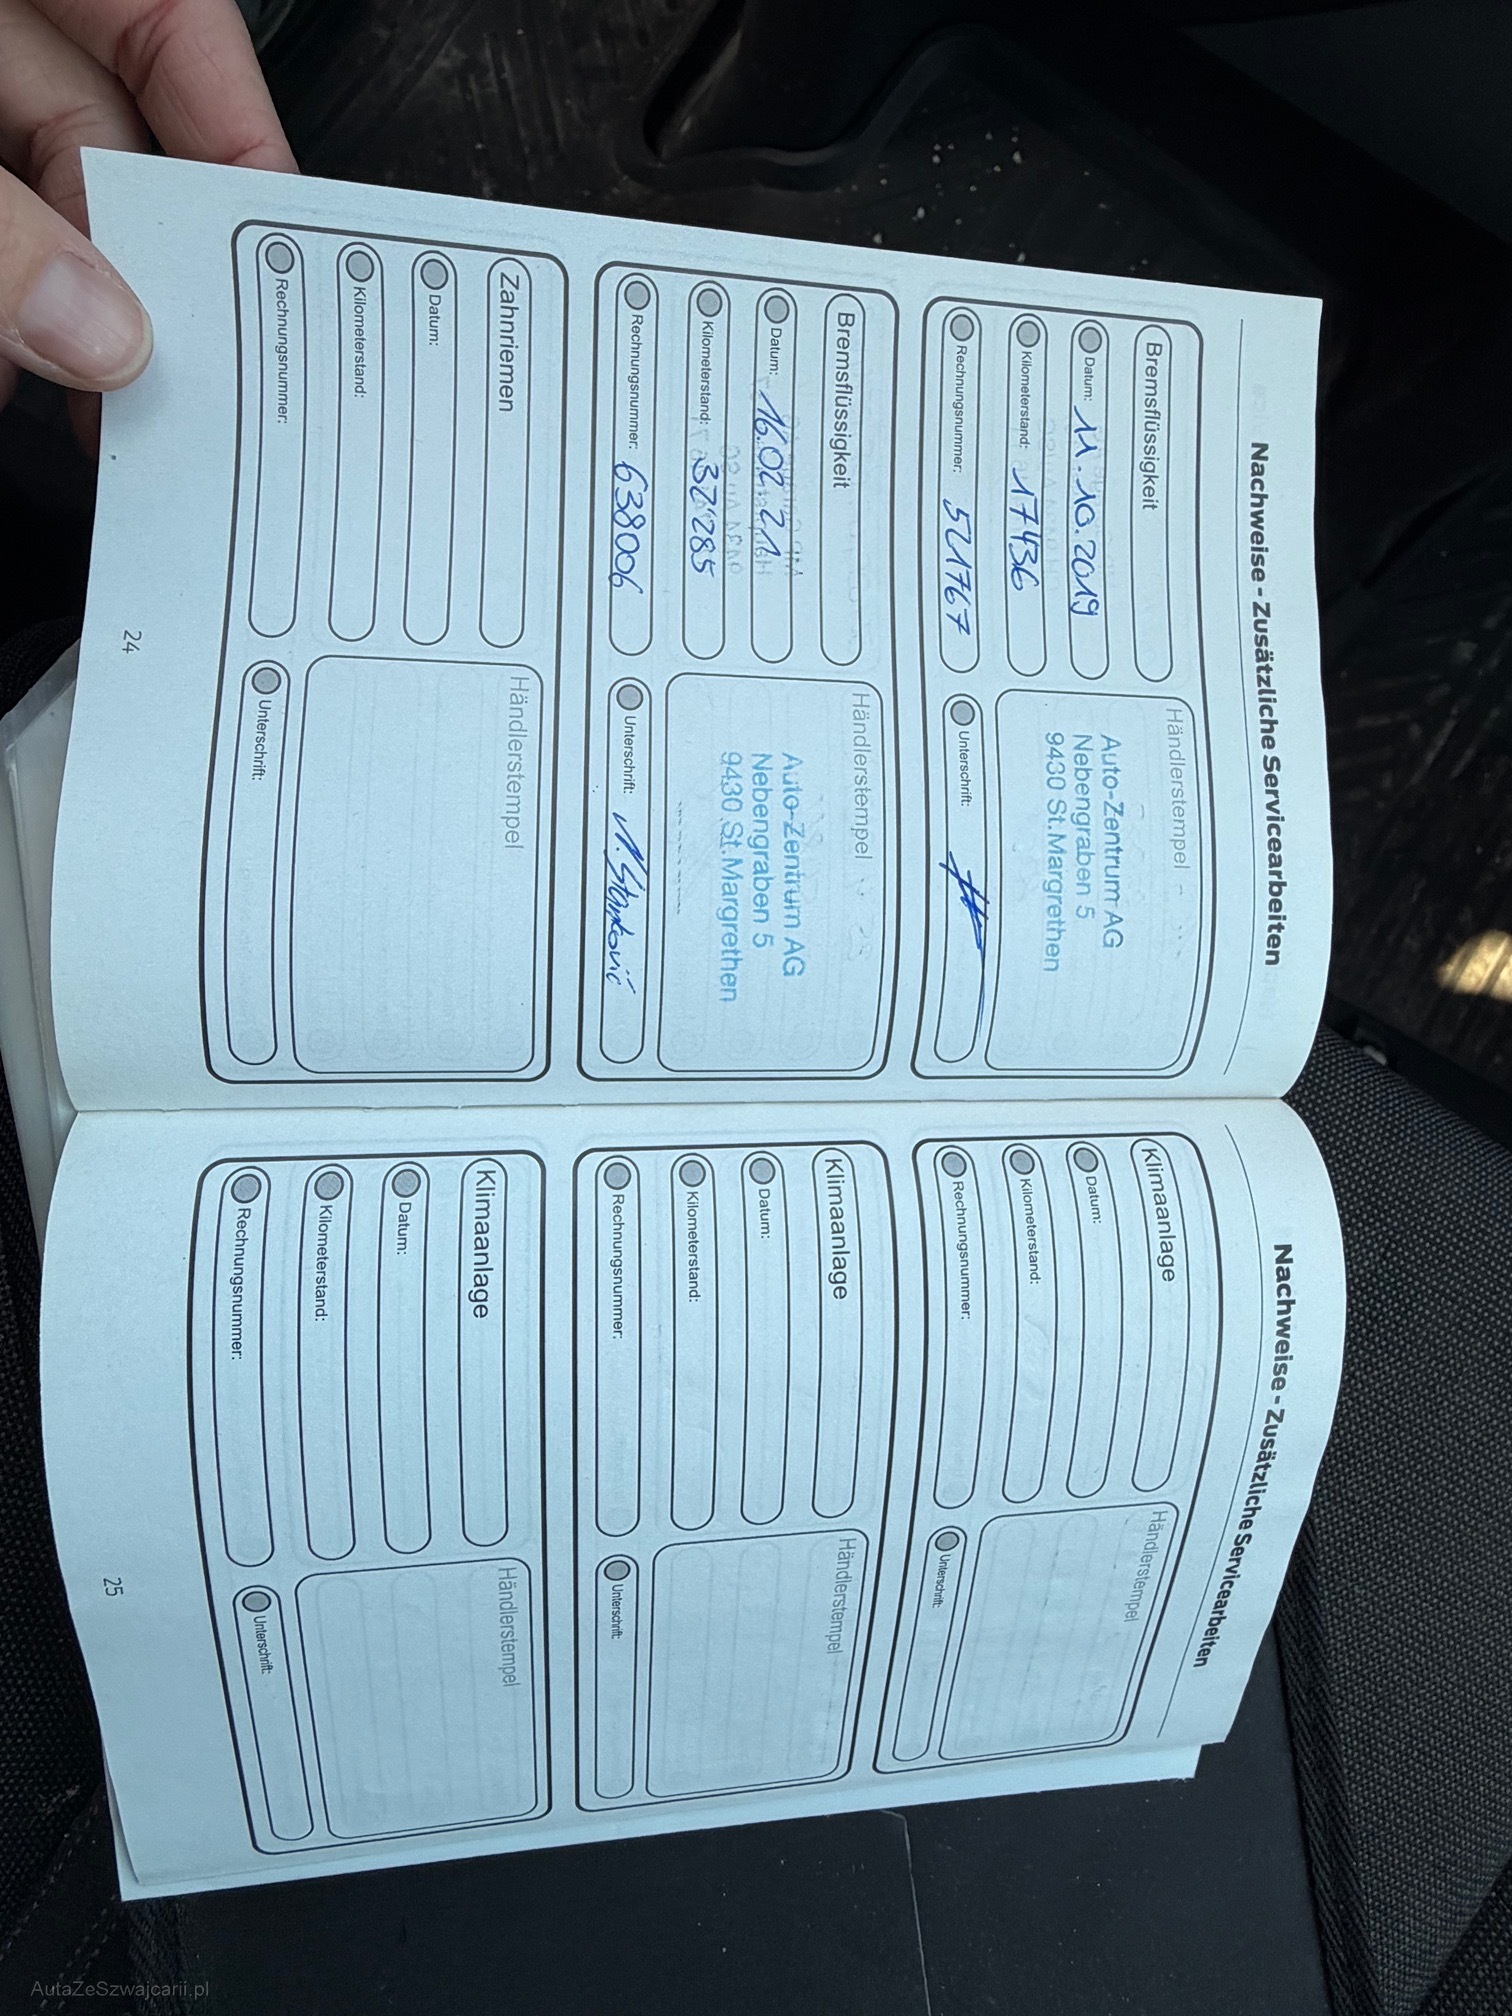 Nachweise - Zusätzliche Servicearbeiten
Bremsflüssigkeit
Datum: 11.10.2019
Kilometerstand: 17436
Rechnungsnummer: 521767
Händlerstempel
Auto-Zentrum AG
Nebengraben 5
9430 St.Margrethen
Unterschrift:
Bremsflüssigkeit
Datum: 16.02.21
Kilometerstand: 32'285
Rechnungsnummer: 638006
Händlerstempel
Auto-Zentrum AG
Nebengraben 5
9430 St.Margrethen
Unterschrift:
Zahnriemen
Datum:
Kilometerstand:
Rechnungsnummer:
Händlerstempel
Unterschrift:
24
Nachweise - Zusätzliche Servicearbeiten
Klimaanlage
Datum:
Kilometerstand:
Rechnungsnummer:
Händlerstempel
Unterschrift:
Klimaanlage
Datum:
Kilometerstand:
Rechnungsnummer:
Händlerstempel
Unterschrift:
Klimaanlage
Datum:
Kilometerstand:
Rechnungsnummer:
Händlerstempel
Unterschrift:
25
AutaZeSzwajcarii.pl